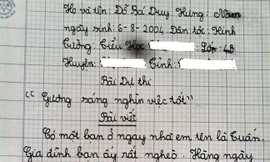 Họ và tên: Đỗ Bá Duy Hưng: Nam
ngày sinh: 6-8-2004 Dân tộc: Kinh
Trường: Tiểu Học Lớp 4B
Huyện: Tỉnh:
Bài Dự thi
"Gương sáng nghìn việc tốt"
Bài viết
Có một bạn ở ngay nhà em tên là Tuấn.
Gia đình bạn ấy rất nghèo. Hàng ngày